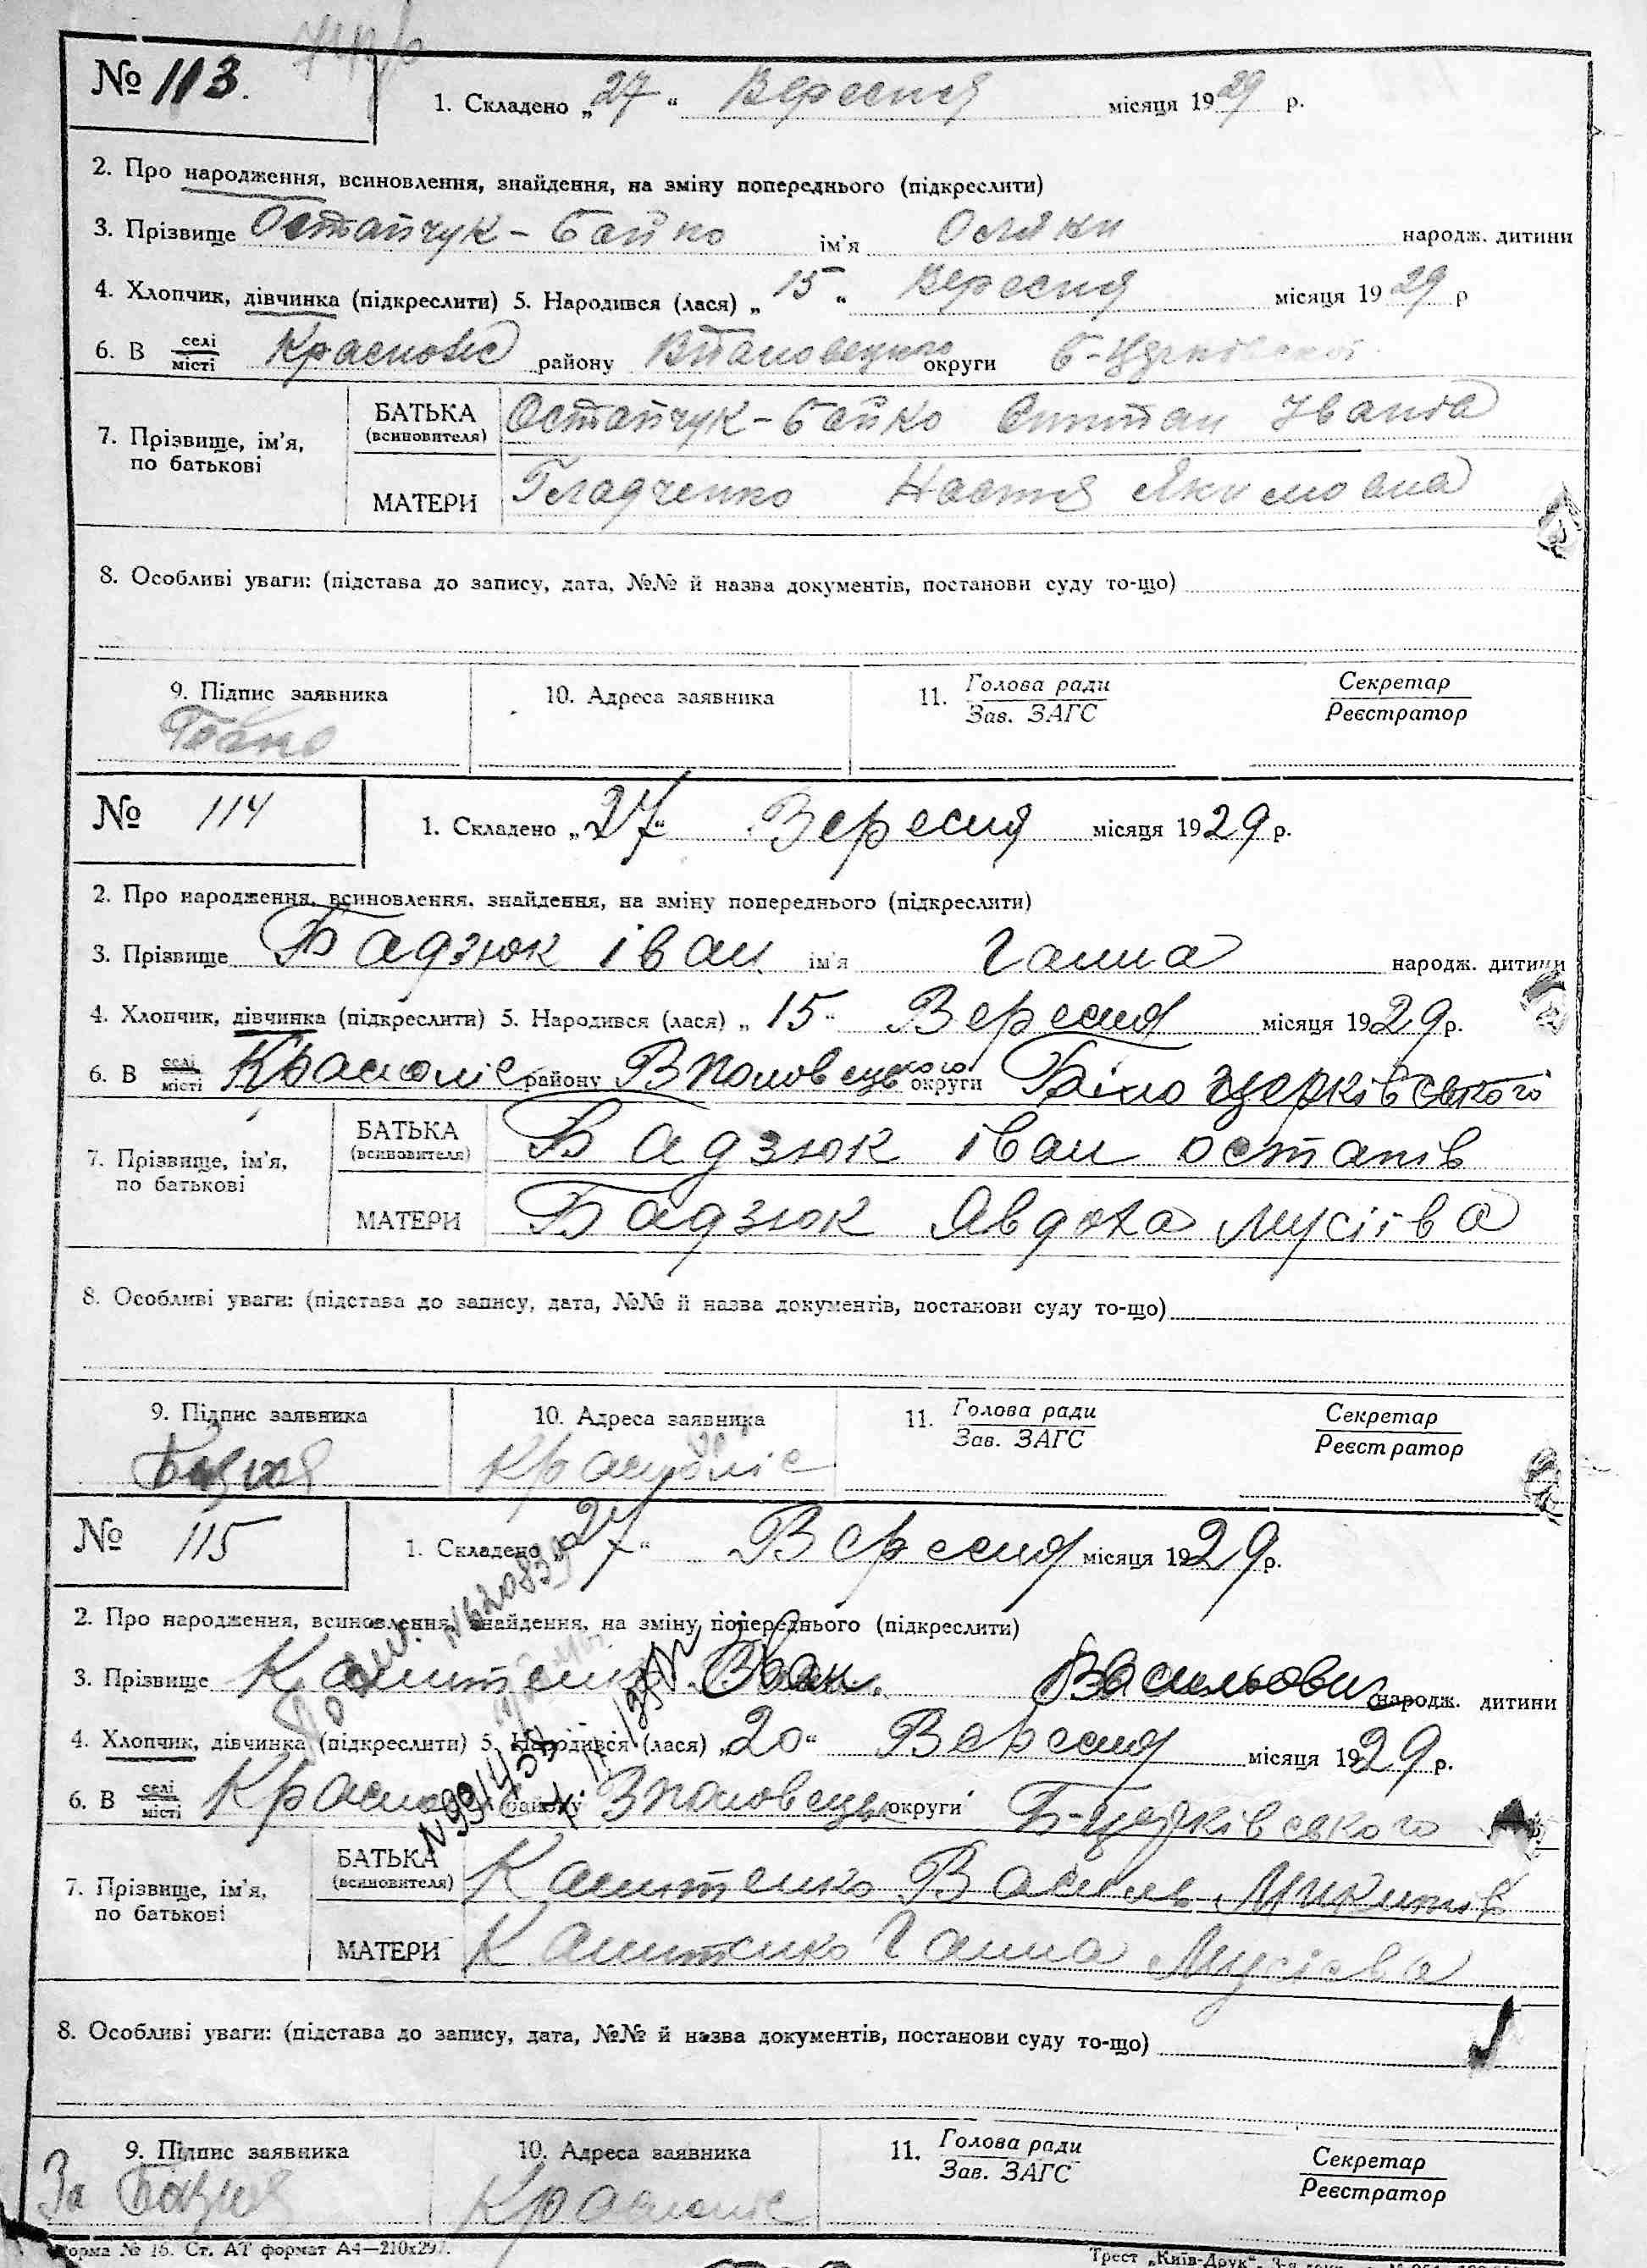 № 113.
1. Складено „27“ Вересня місяця 1929 р.
2. Про народження, всиновлення, знайдення, на зміну попереднього (підкреслити)
3. Прізвище Остапчук - Байко ім'я народж. дитини
4. Хлопчик, дівчинка (підкреслити) 5. Народився (лася) „15“ Вересня місяця 1929 р
6. В селі/місті району округи
7. Прізвище, ім'я, по батькові
БАТЬКА (всиновителя) Остапчук - Байко Івана
МАТЕРИ Гладченко Настя Якимовна
8. Особливі уваги: (підстава до запису, дата, №№ й назва документів, постанови суду то-що)
9. Підпис заявника
10. Адреса заявника
11. Голова ради/Зав. ЗАГС
Секретар/Реєстратор
№ 114
1. Складено „27“ Вересня місяця 1929 р.
2. Про народження, всиновлення, знайдення, на зміну попереднього (підкреслити)
3. Прізвище Бадзюк іван ім'я Ганна народж. дитини
4. Хлопчик, дівчинка (підкреслити) 5. Народився (лася) „15“ Вересня місяця 1929 р.
6. В селі/місті Красноліс району округи Біло Церківського
7. Прізвище, ім'я, по батькові
БАТЬКА (всиновителя) Бадзюк іван остапів
МАТЕРИ Бадзюк Явдоха Мусіева
8. Особливі уваги: (підстава до запису, дата, №№ й назва документів, постанови суду то-що)
9. Підпис заявника
10. Адреса заявника
Красноліс
11. Голова ради/Зав. ЗАГС
Секретар/Реєстратор
№ 115
1. Складено „27“ Вересня місяця 1929 р.
2. Про народження, всиновлення, знайдення, на зміну попереднього (підкреслити)
3. Прізвище Іван Васильович народж. дитини
4. Хлопчик, дівчинка (підкреслити) 5. Народився (лася) „20“ Вересня місяця 1929 р.
6. В селі/місті району округи Б-Церківського
7. Прізвище, ім'я, по батькові
БАТЬКА (всиновителя) Василь Микитів
МАТЕРИ Ганна Мусіева
8. Особливі уваги: (підстава до запису, дата, №№ й назва документів, постанови суду то-що)
9. Підпис заявника
За
10. Адреса заявника
Красноліс
11. Голова ради/Зав. ЗАГС
Секретар/Реєстратор
Форма № 16. Ст. АТ формат А4—210х297.
Трест „Київ-Друк“